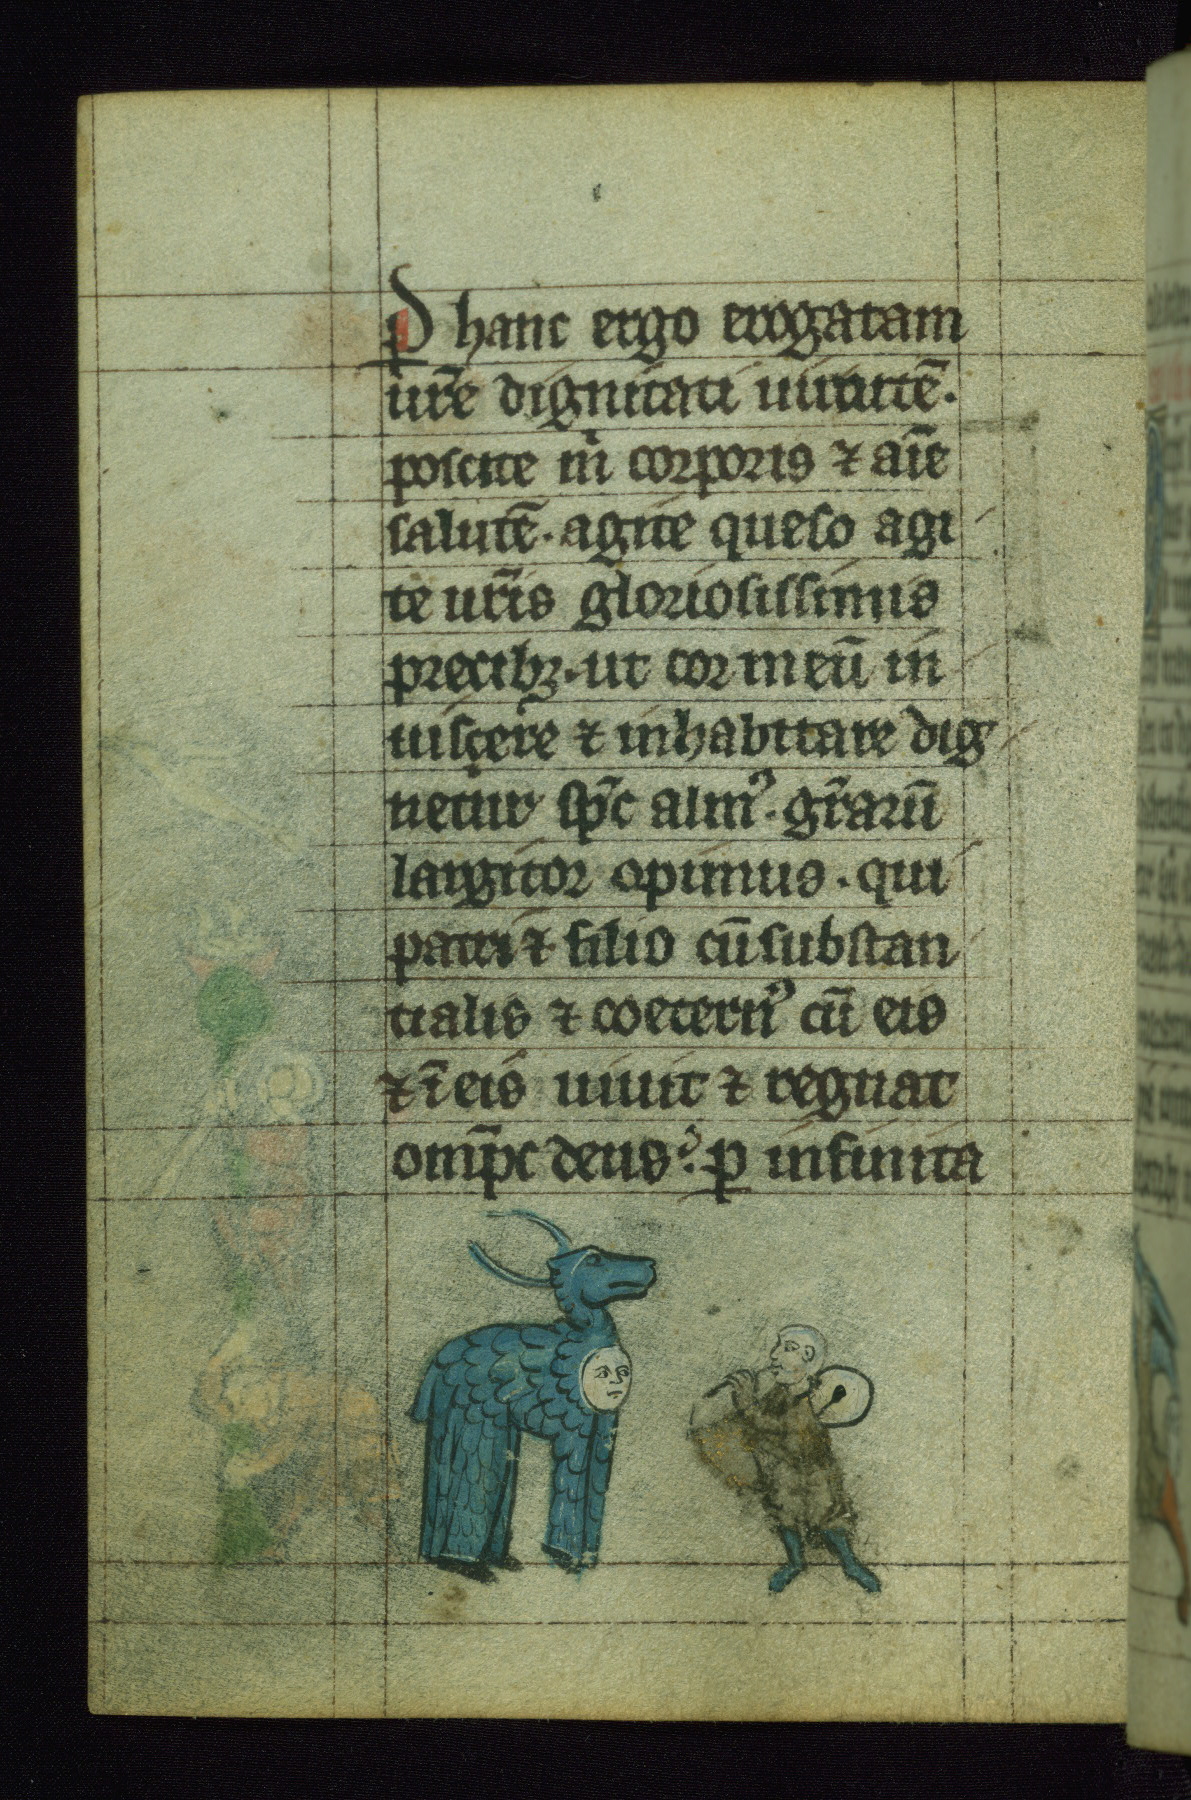 P hanc ergo erogatam
ur̄e dignitati uirtutē.
poscite m̄ corporis ⁊ aīe
salutē. agite queso agi
te ur̄is gloriosissimis
precibꝫ. ut cor meū in
uisce̩re ⁊ inhabitare dig
netur sp̄c almꝰ. gr̄arū
largitor opimus. qui
patri ⁊ filio cū substan
tialis ⁊ coeternꝰ cū eis
⁊ ī eis uiuit ⁊ regnat
omp̄c deus. ꝑ infinita